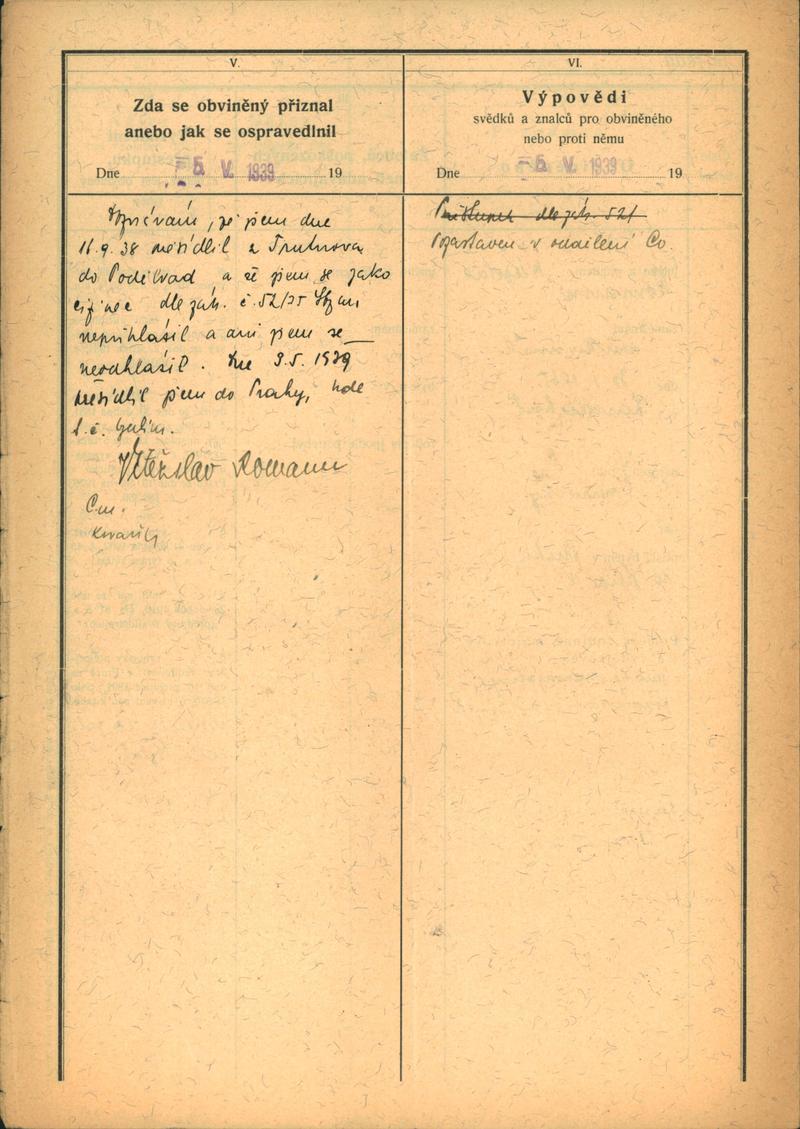 V.
Zda se obviněný přiznal
anebo jak se ospravedlnil
Dne - 5. V. 1939 19
Doznávám, že jsem dne
11.9.38 z Trutnova
do Poděbrad a že jsem se jako
cizinec dle zák. č. 52/35 Sb
nepřihlásil a ani jsem se
neodhlásil. Dne 3.5. 1939
jsem do Prahy, kde
t.č. bydlím.
Vítězslav Romann
VI.
Výpovědi
svědků a znalců pro obviněného
nebo proti němu
Dne - 5. V. 1939 19
Přestupek dle zák. 52/
v oddělení Co.